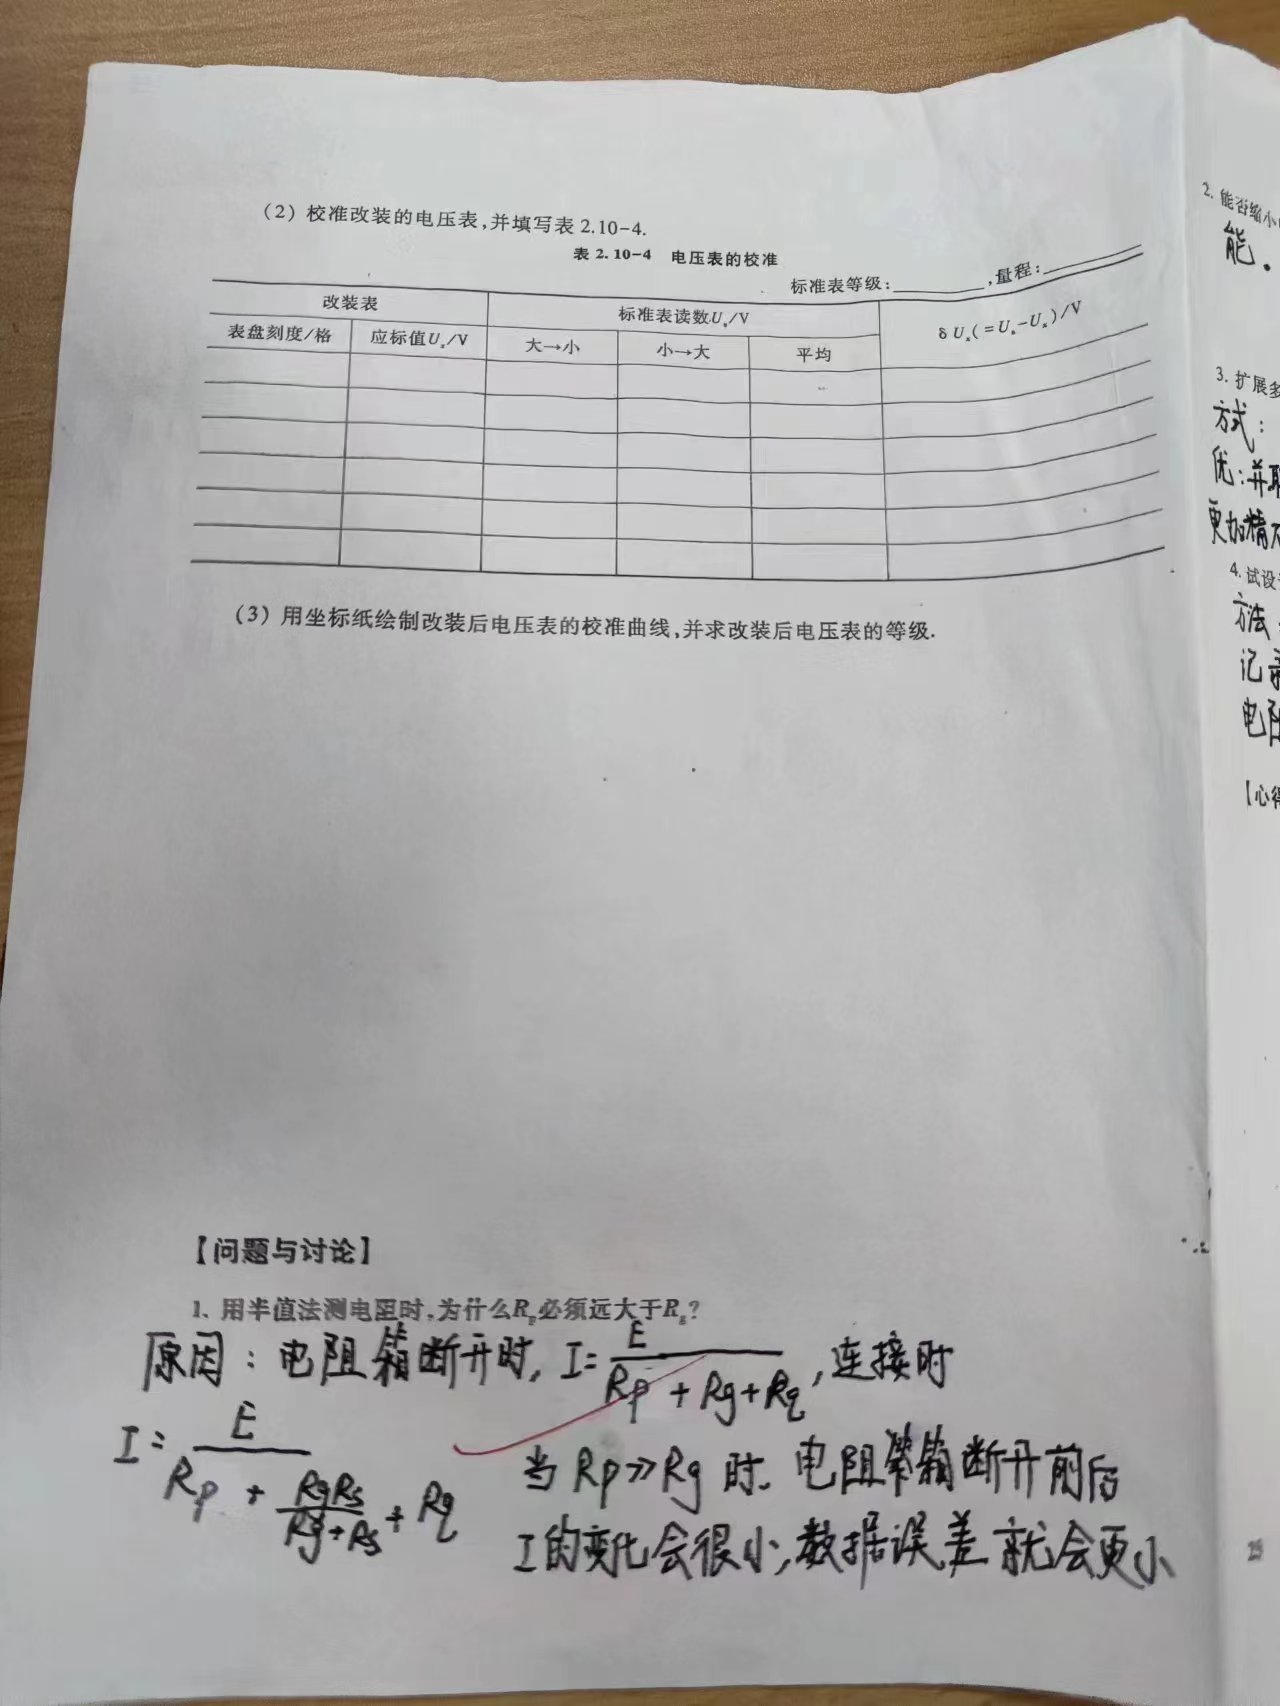 (2) 校准改装的电压表,并填写表 2.10-4.
表 2.10-4 电压表的校准
标准表等级:________,量程:________
改装表
标准表读数Uₛ/V
δUₓ(=Uₛ-Uₓ)/V
表盘刻度/格
应标值Uₓ/V
大→小
小→大
平均
(3) 用坐标纸绘制改装后电压表的校准曲线,并求改装后电压表的等级.
【问题与讨论】
1. 用半值法测电阻时,为什么Rₚ必须远大于R_g?
原因:电阻箱断开时, I=E/(Rp+Rg+Rq),连接时
I=E/(Rp+RgRs/(Rg+Rs)+Rq)
当Rp>>Rg时.电阻箱断开前后
I的变化会很小,数据误差就会更小
2. 能否缩小
能.
3. 扩展
方式:
优:并联
更加精
4. 试设
方法
记录
电阻
【心得